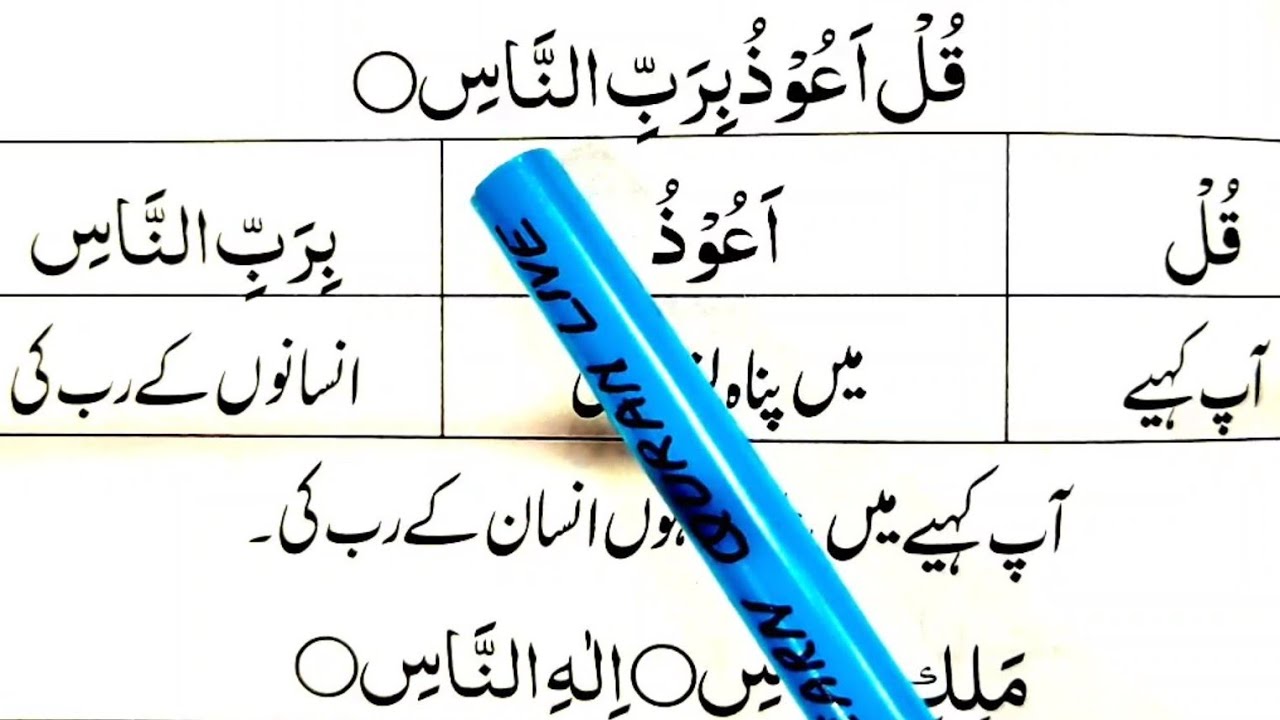 قُلْ اَعُوْذُ بِرَبِّ النَّاسِ○
قُلْ اَعُوْذُ بِرَبِّ النَّاسِ
آپ کہیے میں پناہ انسانوں کے رب کی
آپ کہیے میں ہوں انسان کے رب کی۔
مَلِكِ ○ اِلٰهِ النَّاسِ○
QURAN LIVE